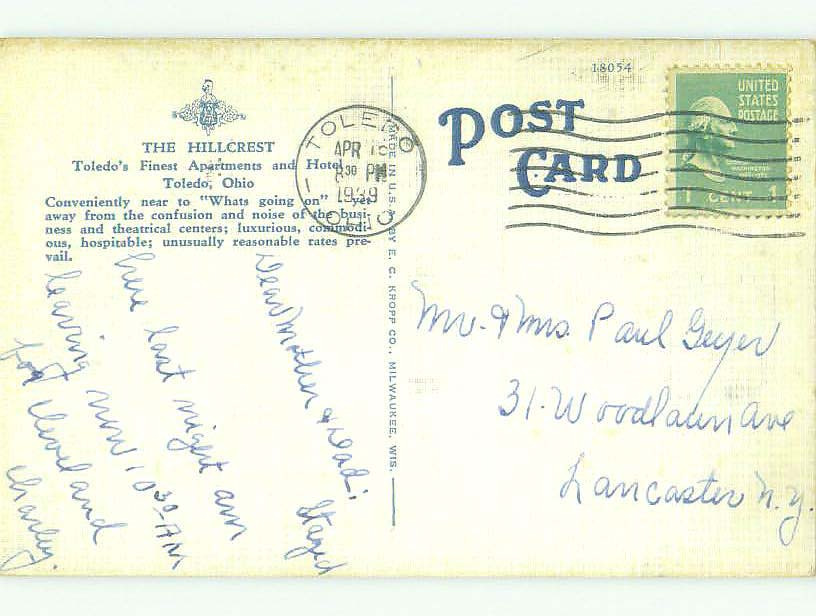 THE HILLCREST
Toledo's Finest Apartments and Hotel
Toledo, Ohio
Conveniently near to "Whats going on" - yet
away from the confusion and noise of the busi-
ness and theatrical centers; luxurious, commodi-
ous, hospitable; unusually reasonable rates pre-
vail.
Dear Mother & Dad: Stayed
here last night am
leaving now 10 30 AM
for Cleveland
Charley.
MADE IN U.S.A. BY E. C. KROPP CO., MILWAUKEE, WIS.
TOLEDO
APR
30 PM
1939
OHIO
18054
POST
CARD
UNITED
STATES
POSTAGE
WASHINGTON
1 CENT 1
Mr. & Mrs. Paul Geyer
31 Woodlawn Ave
Lancaster N.Y.